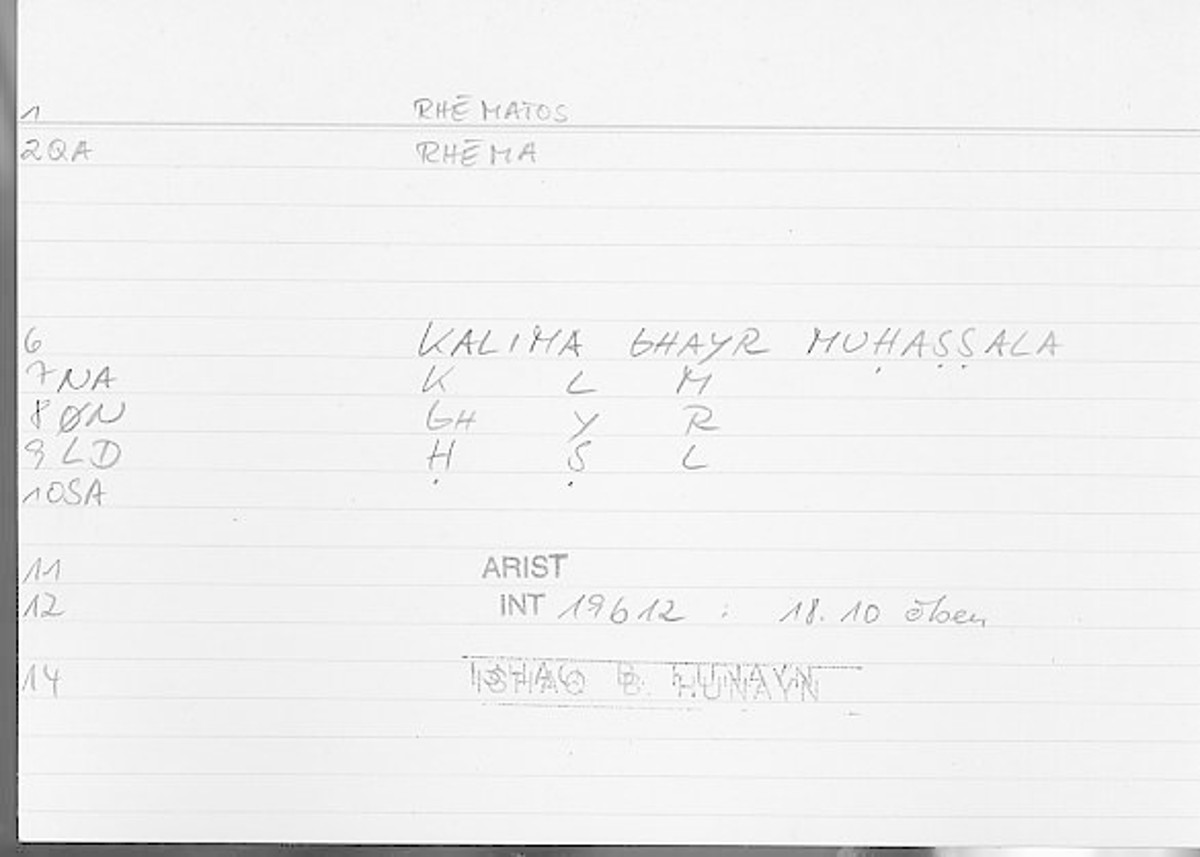 1 RHĒMATOS
2QA RHĒMA
6 KALIMA GHAYR MUḤAṢṢALA
7NA K L M
8ØN GH Y R
9LD Ḥ Ṣ L
10SA
11 ARIST
12 INT 19b12 : 18.10 oben
14 ISHAQ B. HUNAYN